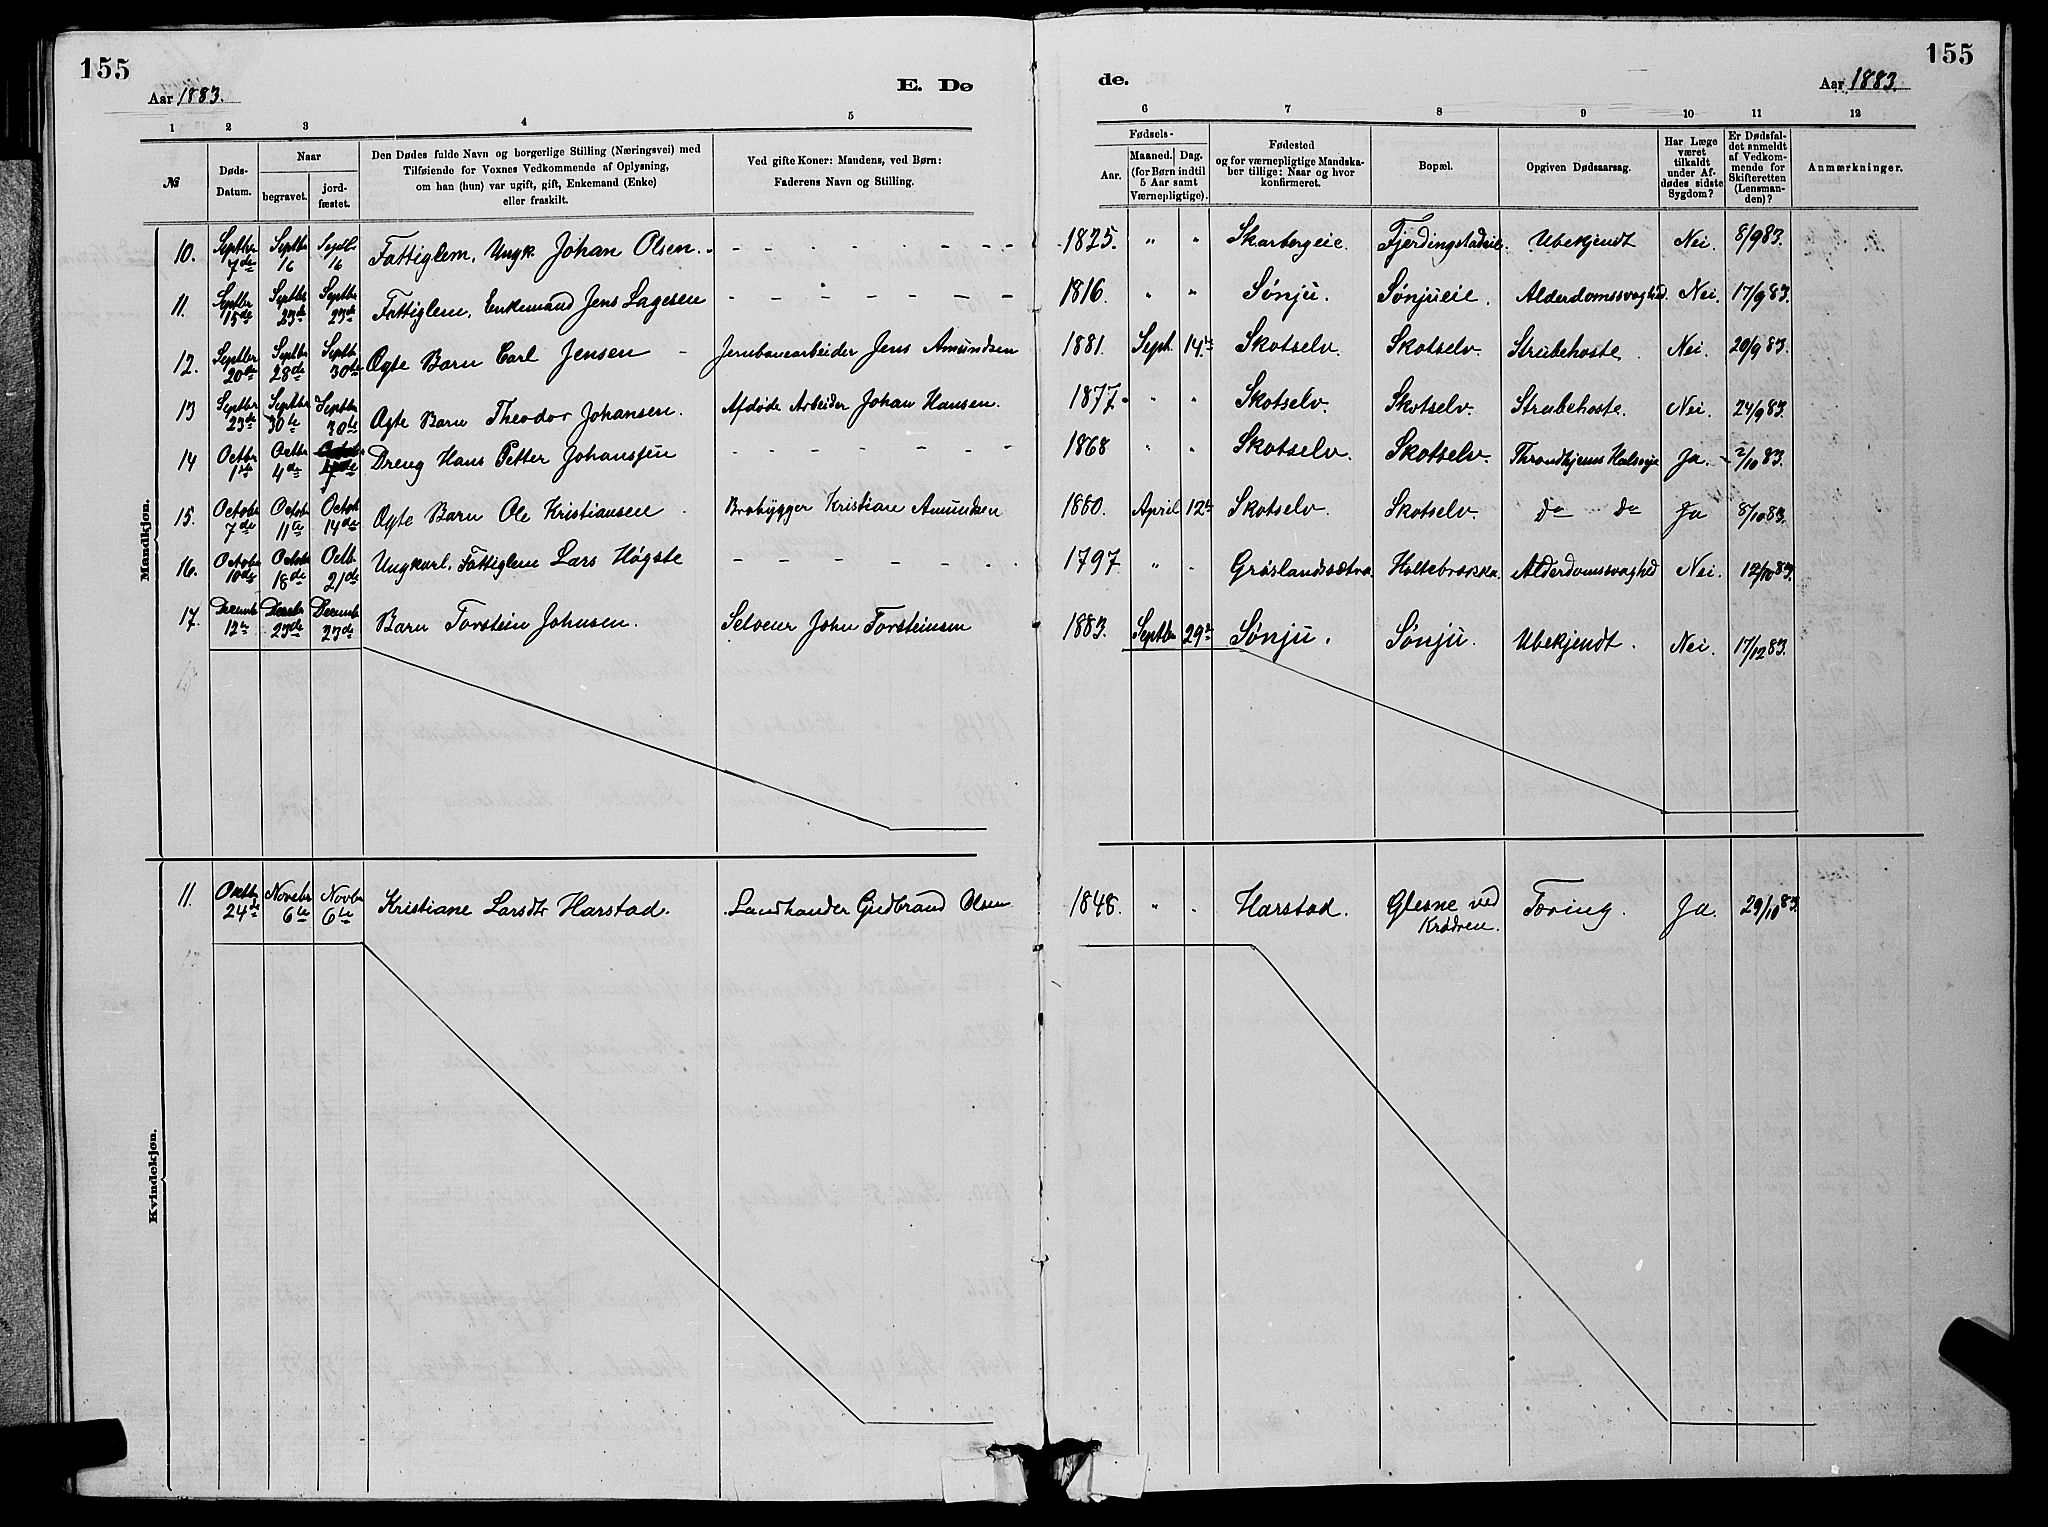 155
155
Aar 1883.
E. Dø
de.
Aar 1883.
1 2 3 4 5 6 7 8 9 10 11 12
№
Døds-Datum.
Naar
begravet.
jord-fæstet.
Den Dødes fulde Navn og borgerlige Stilling (Næringsvei) med
Tilføiende for Voxnes Vedkommende af Oplysning,
om han (hun) var ugift, gift, Enkemand (Enke)
eller fraskilt.
Ved gifte Koner: Mandens, ved Børn:
Faderens Navn og Stilling.
Fødsels-
Aar.
Maaned. Dag.
(for Børn indtil
5 Aar samt
Værnepligtige).
Fødested
og for værnepligtige Mandska-
ber tillige: Naar og hvor
konfirmeret.
Bopæl.
Opgiven Dødsaarsag.
Har Læge
været
tilkaldt
under Af-
dødes sidste
Sygdom?
Er Dødsfal-
det anmeldt
af Vedkom-
mende for
Skifteretten
(Lensman-
den)?
Anmærkninger.
Mandkjøn.
10. Septbr 7de Septbr 16 Septb. 16 Fattiglem, Ungk. Johan Olsen. - - - - - - - - 1825. " " Skarbergeie. Fjerdingstadeie. Ubekjendt Nei. 8/9 83.
11. Septbr 15de Septbr 23de Septbr 23de Fattiglem, Enkemand Jens Lagesen - - - - - - - 1816. " " Sønju. Sønjueie. Alderdomssvaghed. Nei. 17/9 83.
12. Septbr 20de Septbr 28de Septbr 30te Ægte Barn Carl Jensen - Jernbanearbeider Jens Amundsen 1881. Sept. 14de Skotselv. Skotselv. Strubehoste. Nei. 20/9 83.
13 Septbr 23de Septbr 30te Septbr 30te Ægte Barn Theodor Johansen. Afdøde Arbeider Johan Hansen. 1877. " " Skotselv. Skotselv. Strubehoste. Nei. 24/9 83.
14 Octbr 1ste Octbr 4de 7de Dreng Hans Petter Johansen - - - - - - - 1868 " " Skotselv. Skotselv. Throndhjems Halssyge Ja. 2/10 83.
15. Octobr 7de Octobr 11te Octobr 14de Ægte Barn Ole Kristiansen. Brobygger Kristian Amundsen 1880. April 12te Skotselv. Skotselv. do do Ja 8/10 83.
16. Octobr 10de Octobr 18de Octb. 21de Ungkarl. Fattiglem Lars Høgste - - - - - - - 1797. " " Grøslandssætra. Holtebrækka. Alderdomssvaghed Nei. 12/10 83.
17. Decembr 12te 23de Decembr 23de Barn Torstein Johnsen. Selveier John Torsteinsen 1883. Septbr 29de Sønju. Sønju. Ubekjendt. Nei. 17/12 83.
Kvindekjøn.
11. Octbr 24de Novebr 6te Novbr 6te Kristiane Larsdtr Harstad. Landhandler Gudbrand Olsen 1848. " " Harstad. Glesne ved Krødren. Tæring. Ja. 29/10 83.